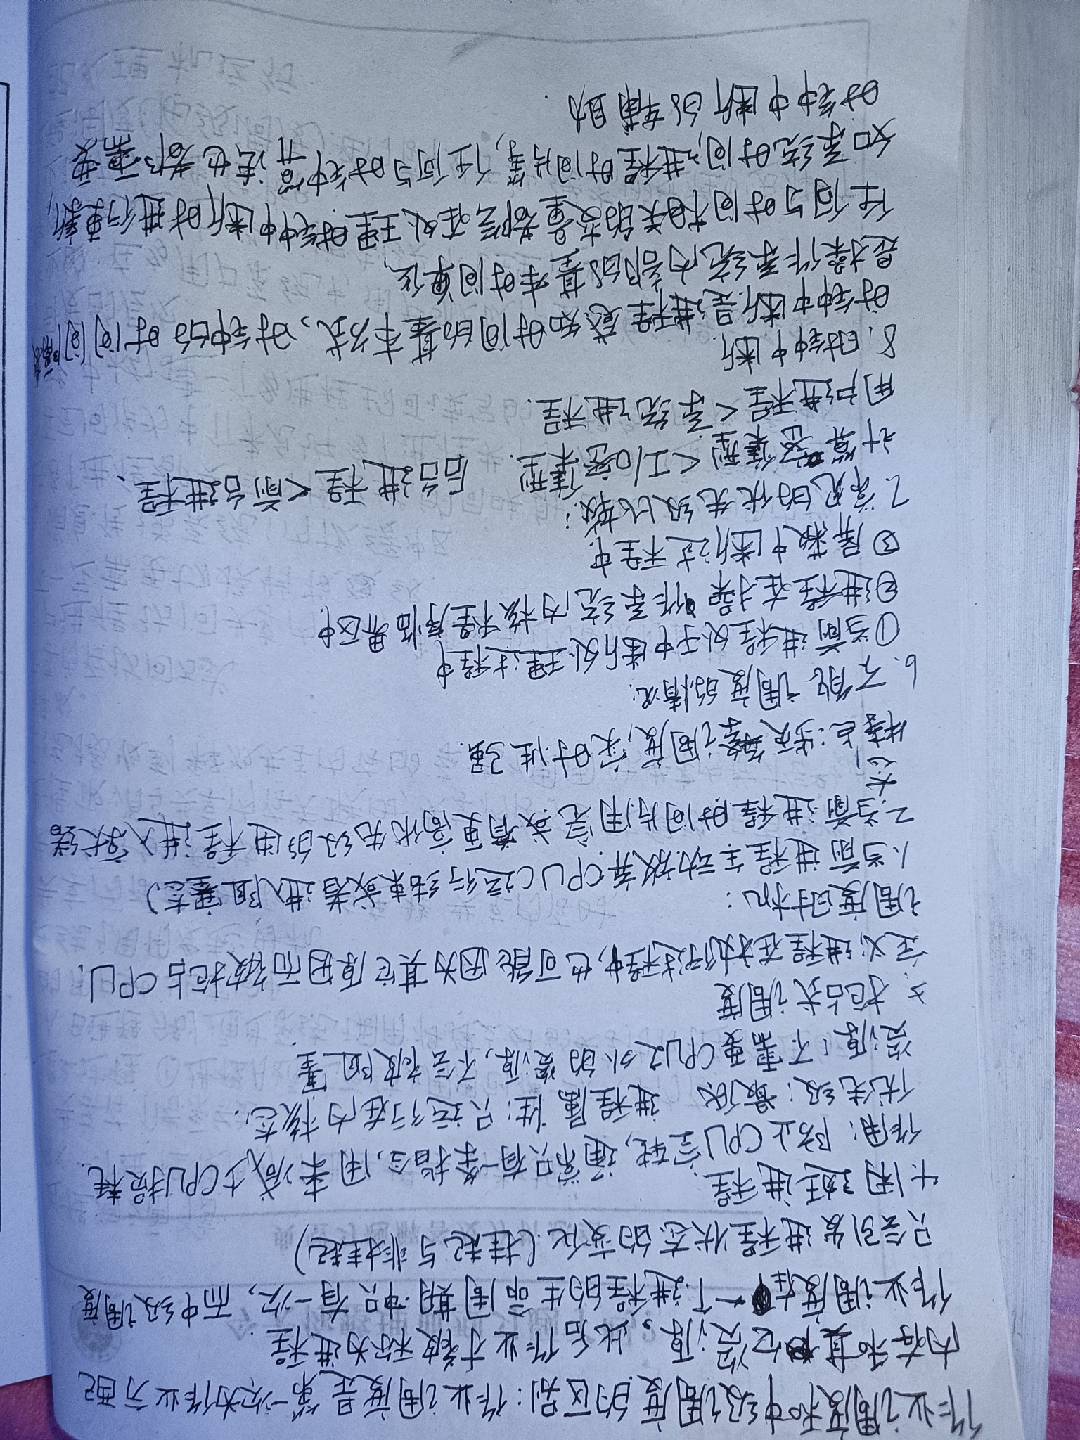 作业调度和中级调度的区别:作业调度是第一次为作业分配
内存和其它资源,此后作业才被称为进程.
作业调度在一个进程的生命周期中只有一次,而中级调度
只会引发进程状态的变化(挂起与非挂起)
4.闲逛进程.
作用:防止CPU空转,通常只有一条指令,用来减少CPU损耗.
优先级:最低 进程属性:只运行在内核态.
资源:不需要CPU之外的资源,不会被阻塞.
5.抢占式调度
定义:进程在执行过程中,也可能因为其它原因而被抢占CPU.
调度时机:
1.当前进程主动放弃CPU(运行结束或者进入阻塞态)
2.当前进程时间片用完或有更高优先级的进程进入就绪
态.
特点:频繁调度,实时性强.
6.不能调度的情况:
①当前进程处于中断处理过程中
②进程在操作系统内核程序临界区中.
③屏蔽中断过程中.
7.常见的优先级比较:
计算密集型<I/O密集型. 后台进程<前台进程、
用户进程<系统进程.
8.时钟中断.
时钟中断是进程感知时间的基本方式、时钟的时间间隔
是操作系统内部的基本时间单位.
任何与时间相关的变量都会在处理时钟中断时进行更新,
如系统时间,进程时间片等,任何与时钟算法也都需要
时钟中断的辅助.